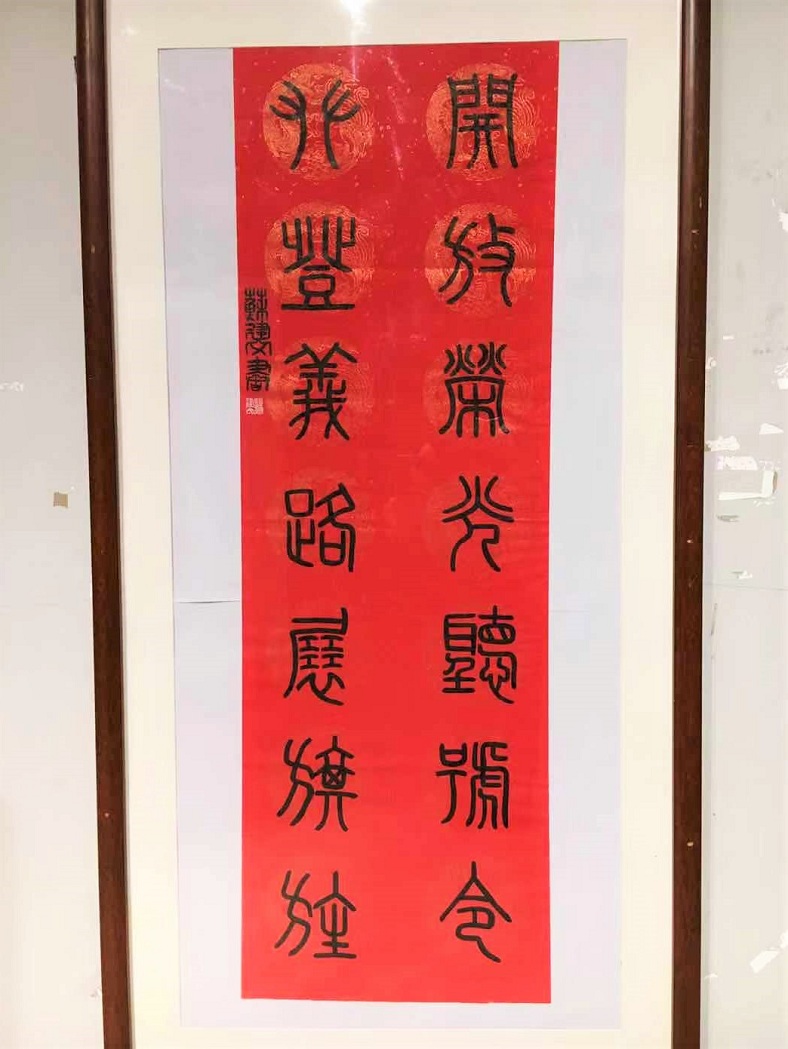 開放榮光聽號令
攀登義路展旗旌
蘇建文書